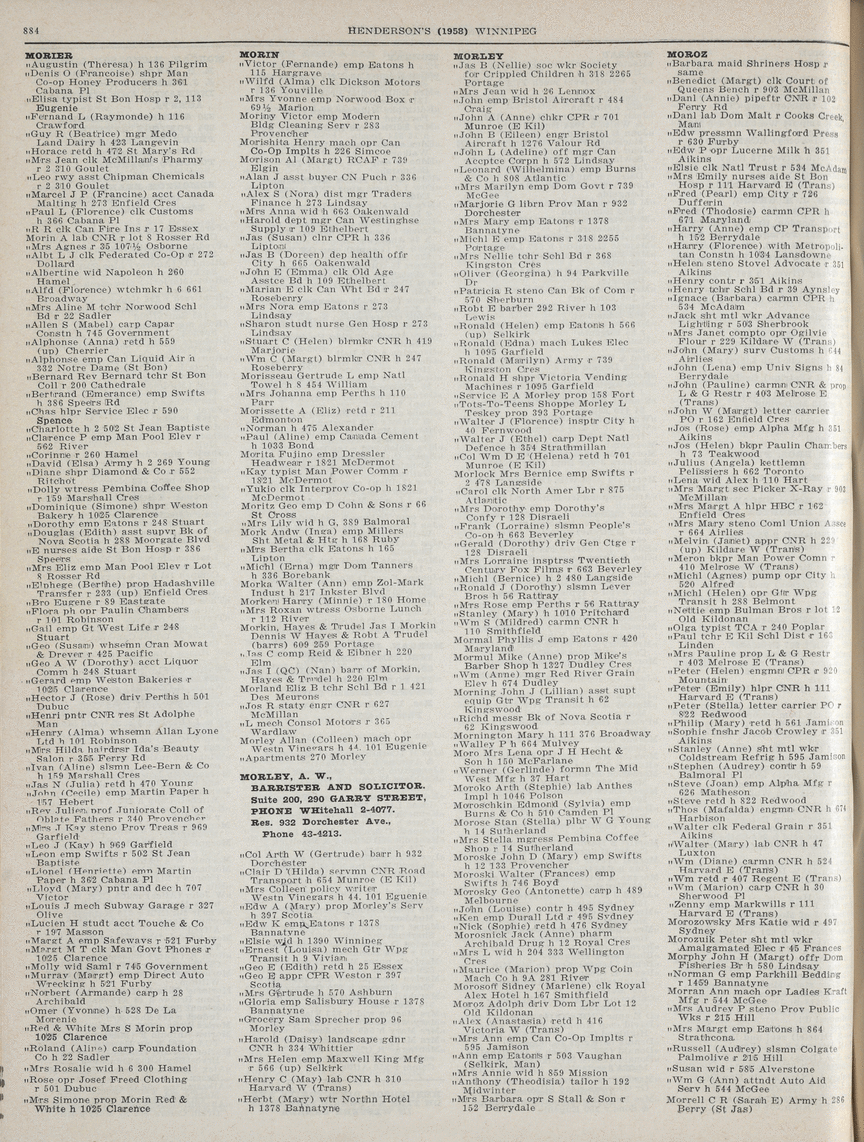 884
HENDERSON'S (1958) WINNIPEG
MORIER
"Augustin (Theresa) h 136 Pilgrim
"Denis O (Francoise) shpr Man
Co-op Honey Producers h 361
Cabana Pl
"Elisa typist St Bon Hosp r 2, 113
Eugenie
"Fernand L (Raymonde) h 116
Crawford
"Guy R (Beatrice) mgr Medo
Land Dairy h 423 Langevin
"Horace retd h 472 St Mary's Rd
"Mrs Jean clk McMillan's Pharmy
r 2 310 Goulet
"Leo rwy asst Chipman Chemicals
r 2 310 Goulet
"Marcel J P (Francine) acct Canada
Malting h 273 Enfield Cres
"Paul L (Florence) clk Customs
h 366 Cabana Pl
"R R clk Can Fire Ins r 17 Essex
Morin A lab CNR r lot 8 Rosser Rd
"Mrs Agnes r 35 107½ Osborne
"Albt L J clk Federated Co-Op r 272
Dollard
"Albertine wid Napoleon h 260
Hamel
"Alfd (Florence) wtchmkr h 6 661
Broadway
"Mrs Aline M tchr Norwood Schl
Bd r 22 Sadler
"Allen S (Mabel) carp Capar
Constn h 745 Government
"Alphonse (Anna) retd h 559
(up) Cherrier
"Alphonse emp Can Liquid Air h
332 Notre Dame (St Bon)
"Bernard Rev Bernard tchr St Bon
Coll r 200 Cathedrale
"Bertrand (Emerance) emp Swifts
h 386 Speers Rd
"Chas hlpr Service Elec r 590
Spence
"Charlotte h 2 502 St Jean Baptiste
"Clarence P emp Man Pool Elev r
562 River
"Corinne r 260 Hamel
"David (Elsa) Army h 2 269 Young
"Diane shpr Diamond & Co r 552
Ritchot
"Dolly wtress Pembina Coffee Shop
r 159 Marshall Cres
"Dominique (Simone) shpr Weston
Bakery h 1025 Clarence
"Dorothy emp Eatons r 248 Stuart
"Douglas (Edith) asst suprv Bk of
Nova Scotia h 288 Moorgate Blvd
"E nurses aide St Bon Hosp r 386
Speers
"Mrs Eliz emp Man Pool Elev r Lot
8 Rosser Rd
"Elphege (Berthe) prop Hadashville
Transfer r 233 (up) Enfield Cres
"Bro Eugene r 89 Eastgate
"Flora ph opr Paulin Chambers
r 101 Robinson
"Gail emp Gt West Life r 248
Stuart
"Geo (Susan) whsemn Cran Mowat
& Drever r 425 Pacific
"Geo A W (Dorothy) acct Liquor
Comm h 248 Stuart
"Gerard emp Weston Bakeries r
1025 Clarence
"Hector J (Rose) driv Perths h 501
Dubuc
"Henri pntr CNR res St Adolphe
Man
"Henry (Alma) whsemn Allan Lyone
Ltd h 101 Robinson
"Mrs Hilda hairdrsr Ida's Beauty
Salon r 355 Ferry Rd
"Ivan (Aline) slsmn Lee-Bern & Co
h 159 Marshall Cres
"Jas N (Julia) retd h 470 Young
"John (Cecile) emp Martin Paper h
157 Hebert
"Rev Julien prof Juniorate Coll of
Oblate Fathers r 340 Provencher
"Mrs J Kay steno Prov Treas r 969
Garfield
"Leo J (Kay) h 969 Garfield
"Leon emp Swifts r 502 St Jean
Baptiste
"Lionel (Henriette) emp Martin
Paper h 362 Cabana Pl
"Lloyd (Mary) pntr and dec h 707
Victor
"Louis J mech Subway Garage r 327
Olive
"Lucien H studt acct Touche & Co
r 197 Masson
"Margt A emp Safeways r 521 Furby
"Margt M T clk Man Govt Phones r
1025 Clarence
"Molly wid Saml r 745 Government
"Murray (Margt) emp Direct Auto
Wrecking h 521 Furby
"Norbert (Armande) carp h 28
Archibald
"Omer (Yvonne) h 528 De La
Morenie
"Red & White Mrs S Morin prop
1025 Clarence
"Roland (Aline) carp Foundation
Co h 22 Sadler
"Mrs Rosalie wid h 6 300 Hamel
"Rose opr Josef Freed Clothing
r 501 Dubuc
"Mrs Simone prop Morin Red &
White h 1025 Clarence
MORIN
"Victor (Fernande) emp Eatons h
115 Hargrave
"Wilfd (Alma) clk Dickson Motors
r 136 Youville
"Mrs Yvonne emp Norwood Box r
69½ Marion
Moriny Victor emp Modern
Bldg Cleaning Serv r 283
Provencher
Morishita Henry mach opr Can
Co-Op Implts h 226 Simcoe
Morison Al (Margt) RCAF r 739
Elgin
"Alan J asst buyer CN Puch r 336
Lipton
"Alex S (Nora) dist mgr Traders
Finance h 273 Lindsay
"Mrs Anna wid h 663 Oakenwald
"Harold dept mgr Can Westinghse
Supply r 109 Ethelbert
"Jas (Susan) clnr CPR h 336
Lipton
"Jas B (Doreen) dep health offr
City h 665 Oakenwald
"John E (Emma) clk Old Age
Asstce Bd h 109 Ethelbert
"Marian E clk Can Wht Bd r 247
Roseberry
"Mrs Nora emp Eatons r 273
Lindsay
"Sharon studt nurse Gen Hosp r 273
Lindsay
"Stuart C (Helen) blrmkr CNR h 419
Marjorie
"Wm C (Margt) blrmkr CNR h 247
Roseberry
Morisseau Gertrude L emp Natl
Towel h 8 454 William
"Mrs Johanna emp Perths h 110
Parr
Morissette A (Eliz) retd r 211
Edmonton
"Norman h 475 Alexander
"Paul (Aline) emp Canada Cement
h 1033 Bond
Morita Fujino emp Dressler
Headwear r 1821 McDermot
"Kay typist Man Power Comm r
1821 McDermot
"Yukio clk Interprov Co-op h 1821
McDermot
Moritz Geo emp D Cohn & Sons r 66
St Cross
"Mrs Lily wid h G, 389 Balmoral
Mork Andw (Inga) emp Millers
Sht Metal & Htg h 168 Ruby
"Mrs Bertha clk Eatons h 165
Lipton
"Michl (Erna) mgr Dom Tanners
h 336 Borebank
Morka Walter (Ann) emp Zol-Mark
Indust h 217 Inkster Blvd
Morken Harry (Minnie) r 180 Home
"Mrs Roxan wtress Osborne Lunch
r 112 River
Morkin, Hayes & Trudel Jas I Morkin
Dennis W Hayes & Robt A Trudel
(barrs) 609 259 Portage
"Jas C comp Reid & Eibner h 220
Elm
"Jas I (QC) (Nan) barr of Morkin,
Hayes & Trudel h 220 Elm
Morland Eliz B tchr Schl Bd r 1 421
Des Meurons
"Jos R staty engr CNR r 627
McMillan
"L mech Consol Motors r 365
Wardlaw
Morley Allan (Colleen) mach opr
Westn Vinegars h 44, 101 Eugenie
"Apartments 270 Morley
MORLEY, A. W.,
BARRISTER AND SOLICITOR.
Suite 200, 290 GARRY STREET,
PHONE WHitehall 2-4077.
Res. 932 Dorchester Ave.,
Phone 43-4213.
"Col Arth W (Gertrude) barr h 932
Dorchester
"Clair D (Hilda) servmn CNR Road
Transport h 654 Munroe (E Kil)
"Mrs Colleen policy writer
Westn Vinegars h 44, 101 Eugenie
"Edw A (Mary) prop Morley's Serv
h 397 Scotia
"Edw K emp Eatons r 1378
Bannatyne
"Elsie wid h 1390 Winnipeg
"Ernest (Louisa) mech Gtr Wpg
Transit h 9 Vivian
"Geo E (Edith) retd h 25 Essex
"Geo E appr CPR Weston r 397
Scotia
"Mrs Gertrude h 570 Ashburn
"Gloria emp Salisbury House r 1378
Bannatyne
"Grocery Sam Sprecher prop 96
Morley
"Harold (Daisy) landscape gdnr
CNR h 334 Whittier
"Mrs Helen emp Maxwell King Mfg
r 566 (up) Selkirk
"Henry C (May) lab CNR h 310
Harvard W (Trans)
"Herbt (Mary) wtr Northn Hotel
h 1378 Bannatyne
MORLEY
"Jas B (Nellie) soc wkr Society
for Crippled Children h 318 2265
Portage
"Mrs Jean wid h 26 Lennox
"John emp Bristol Aircraft r 484
Craig
"John A (Anna) chkr CPR r 701
Munroe (E Kil)
"John B (Eileen) engr Bristol
Aircraft h 1276 Valour Rd
"John L (Adeline) off mgr Can
Accptce Corpn h 572 Lindsay
"Leonard (Wilhelmina) emp Burns
& Co h 808 Atlantic
"Mrs Marilyn emp Dom Govt r 739
McGee
"Marjorie G librn Prov Man r 932
Dorchester
"Mrs Mary emp Eatons r 1378
Bannatyne
"Michl E emp Eatons h 318 2255
Portage
"Mrs Nellie tchr Schl Bd r 368
Kingston Cres
"Oliver (Georgina) h 94 Parkville
Dr
"Patricia R steno Can Bk of Com r
570 Sherburn
"Robt E barber 292 River h 103
Lewis
"Ronald (Helen) emp Eatons h 566
(up) Selkirk
"Ronald (Edna) mach Lukes Elec
h 1095 Garfield
"Ronald (Marilyn) Army r 739
Kingston Cres
"Ronald H shpr Victoria Vending
Machines r 1095 Garfield
"Service E A Morley prop 158 Fort
"Tots-To-Teens Shoppe Morley L
Teskey prop 393 Portage
"Walter J (Florence) insptr City h
40 Fernwood
"Walter J (Ethel) carp Dept Natl
Defence h 354 Strathmillan
"Col Wm D E (Helena) retd h 701
Munroe (E Kil)
Morlock Mrs Bernice emp Swifts r
2 478 Langside
"Carol clk North Amer Lbr r 875
Atlantic
"Mrs Dorothy emp Dorothy's
Confy r 128 Disraeli
"Frank (Lorraine) slsmn People's
Co-op h 663 Beverley
"Gerald (Dorothy) driv Gen Ctge r
128 Disraeli
"Mrs Lorraine insptrss Twentieth
Century Fox Films r 663 Beverley
"Michl (Bernice) h 2 480 Langside
"Ronald J (Dorothy) slsmn Lever
Bros h 56 Rattray
"Mrs Rose emp Perths r 56 Rattray
"Stanley (Mary) h 1010 Pritchard
"Wm S (Mildred) carmn CNR h
110 Smithfield
Mormal Phyllis J emp Eatons r 420
Maryland
Mormul Mike (Anne) prop Mike's
Barber Shop h 1327 Dudley Cres
"Wm (Anne) mgr Red River Grain
Elev h 674 Dudley
Morning John J (Lillian) asst supt
equip Gtr Wpg Transit h 62
Kingswood
"Richd messr Bk of Nova Scotia r
62 Kingswood
Mornington Mary h 111 376 Broadway
"Walley P h 664 Mulvey
Moro Mrs Lena opr J H Hecht &
Son h 150 McFarlane
"Werner (Gerlinde) formn The Mid
West Mfg h 37 Hart
Moroko Arth (Stephie) lab Anthes
Impl h 1046 Polson
Moroschkin Edmond (Sylvia) emp
Burns & Co h 510 Camden Pl
Morose Stan (Stella) plbr W G Young
h 14 Sutherland
"Mrs Stella mgress Pembina Coffee
Shop r 14 Sutherland
Moroske John D (Mary) emp Swifts
h 12 133 Provencher
Moroski Walter (Frances) emp
Swifts h 746 Boyd
Morosky Geo (Antonette) carp h 489
Melbourne
"John (Louise) contr h 495 Sydney
"Ken emp Durall Ltd r 495 Sydney
"Nick (Sophie) retd h 476 Sydney
Morosnick Jack (Anne) pharm
Archibald Drug h 12 Royal Cres
"Mrs L wid h 204 333 Wellington
Cres
"Maurice (Marion) prop Wpg Coin
Mach Co h 9A 281 River
Morosoff Sidney (Marlene) clk Royal
Alex Hotel h 167 Smithfield
Moroz Adolph driv Dom Lbr Lot 12
Old Kildonan
"Alex (Anastasia) retd h 416
Victoria W (Trans)
"Mrs Ann emp Can Co-Op Implts r
595 Jamison
"Ann emp Eatons r 503 Vaughan
(Selkirk, Man)
"Mrs Annie wid h 859 Mission
"Anthony (Theodisia) tailor h 192
Midwinter
"Mrs Barbara opr S Stall & Son r
152 Berrydale
MOROZ
"Barbara maid Shriners Hosp r
same
"Benedict (Margt) clk Court of
Queens Bench r 903 McMillan
"Danl (Annie) pipeftr CNR r 102
Ferry Rd
"Danl lab Dom Malt r Cooks Creek,
Man
"Edw pressmn Wallingford Press
r 630 Furby
"Edw P opr Lucerne Milk h 351
Aikins
"Elsie clk Natl Trust r 534 McAdam
"Mrs Emily nurses aide St Bon
Hosp r 111 Harvard E (Trans)
"Fred (Pearl) emp City r 726
Dufferin
"Fred (Thodosie) carmn CPR h
671 Maryland
"Harry (Anne) emp CP Transport
h 152 Berrydale
"Harry (Florence) with Metropoli-
tan Constn h 1034 Lansdowne
"Helen steno Stovel Advocate r 351
Aikins
"Henry contr r 351 Aikins
"Henry tchr Schl Bd r 39 Aynsley
"Ignace (Barbara) carmn CPR h
534 McAdam
"Jack sht mtl wkr Advance
Lighting r 503 Sherbrook
"Mrs Janet compto opr Ogilvie
Flour r 229 Kildare W (Trans)
"John (Mary) surv Customs h 644
Airlies
"John (Lena) emp Univ Signs h 84
Berrydale
"John (Pauline) carmn CNR & prop
L & G Restr r 403 Melrose E
(Trans)
"John W (Margt) letter carrier
PO r 162 Enfield Cres
"Jos (Rose) emp Alpha Mfg h 351
Aikins
"Jos (Helen) bkpr Paulin Chambers
h 73 Teakwood
"Julius (Angela) kettlemn
Pelissiers h 662 Toronto
"Lena wid Alex h 110 Hart
"Mrs Margt sec Picker X-Ray r 903
McMillan
"Mrs Margt A hlpr HBC r 162
Enfield Cres
"Mrs Mary steno Coml Union Assce
r 664 Airlies
"Melvin (Janet) appr CNR h 229
(up) Kildare W (Trans)
"Meron bkpr Man Power Comm r
410 Melrose W (Trans)
"Michl (Agnes) pump opr City h
520 Alfred
"Michl (Helen) opr Gtr Wpg
Transit h 288 Belmont
"Nettie emp Bulman Bros r lot 12
Old Kildonan
"Olga typist TCA r 240 Poplar
"Paul tchr E Kil Schl Dist r 163
Linden
"Mrs Pauline prop L & G Restr
r 403 Melrose E (Trans)
"Peter (Helen) engmn CPR r 920
Mountain
"Peter (Emily) hlpr CNR h 111
Harvard E (Trans)
"Peter (Stella) letter carrier PO r
822 Redwood
"Philip (Mary) retd h 561 Jamison
"Sophie fnshr Jacob Crowley r 351
Aikins
"Stanley (Anne) sht mtl wkr
Coldstream Refrig h 595 Jamison
"Stephen (Audrey) contr h 59
Balmoral Pl
"Steve (Joan) emp Alpha Mfg r
626 Matheson
"Steve retd h 822 Redwood
"Thos (Mafalda) engmn CNR h 674
Harbison
"Walter clk Federal Grain r 351
Aikins
"Walter (Mary) lab CNR h 47
Luxton
"Wm (Diane) carmn CNR h 524
Harvard E (Trans)
"Wm retd r 407 Regent E (Trans)
"Wm (Marion) carp CNR h 30
Sherwood Pl
"Zenny emp Markwills r 111
Harvard E (Trans)
Morozowsky Mrs Katie wid r 497
Sydney
Morozuik Peter sht mtl wkr
Amalgamated Elec r 45 Frances
Morphy John H (Margt) offr Dom
Fisheries Br h 580 Lindsay
"Norman G emp Parkhill Bedding
r 1459 Bannatyne
Morran Ann mach opr Ladies Kraft
Mfg r 544 McGee
"Mrs Audrey P steno Prov Public
Wks r 215 Hill
"Mrs Margt emp Eatons h 864
Strathcona
"Russell (Audrey) slsmn Colgate
Palmolive r 215 Hill
"Susan wid r 585 Alverstone
"Wm G (Ann) attndt Auto Aid
Serv h 544 McGee
Morrell C R (Sarah E) Army h 286
Berry (St Jas)